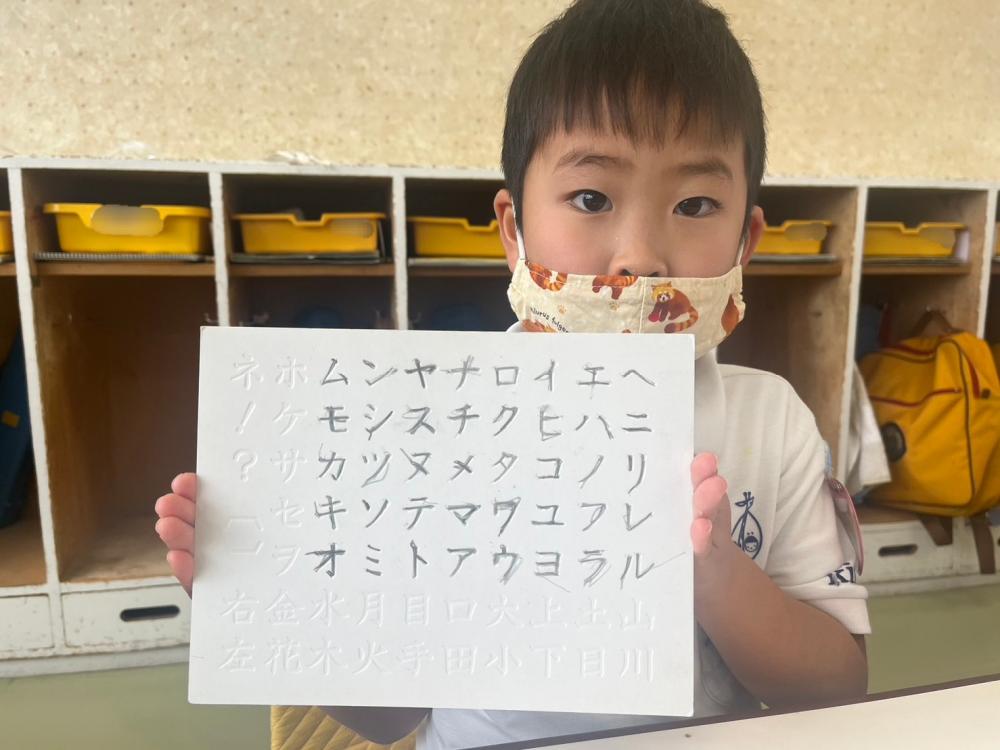 ヘニリレル山川
エハノフラ土日
イヒコユヨ上下
ロクタワウ大小
ナチメマア口田
ヤスヌテト目手
ンシツソミ月火
ムモカキオ水木
ホケサセヲ金花
ネ！？右左